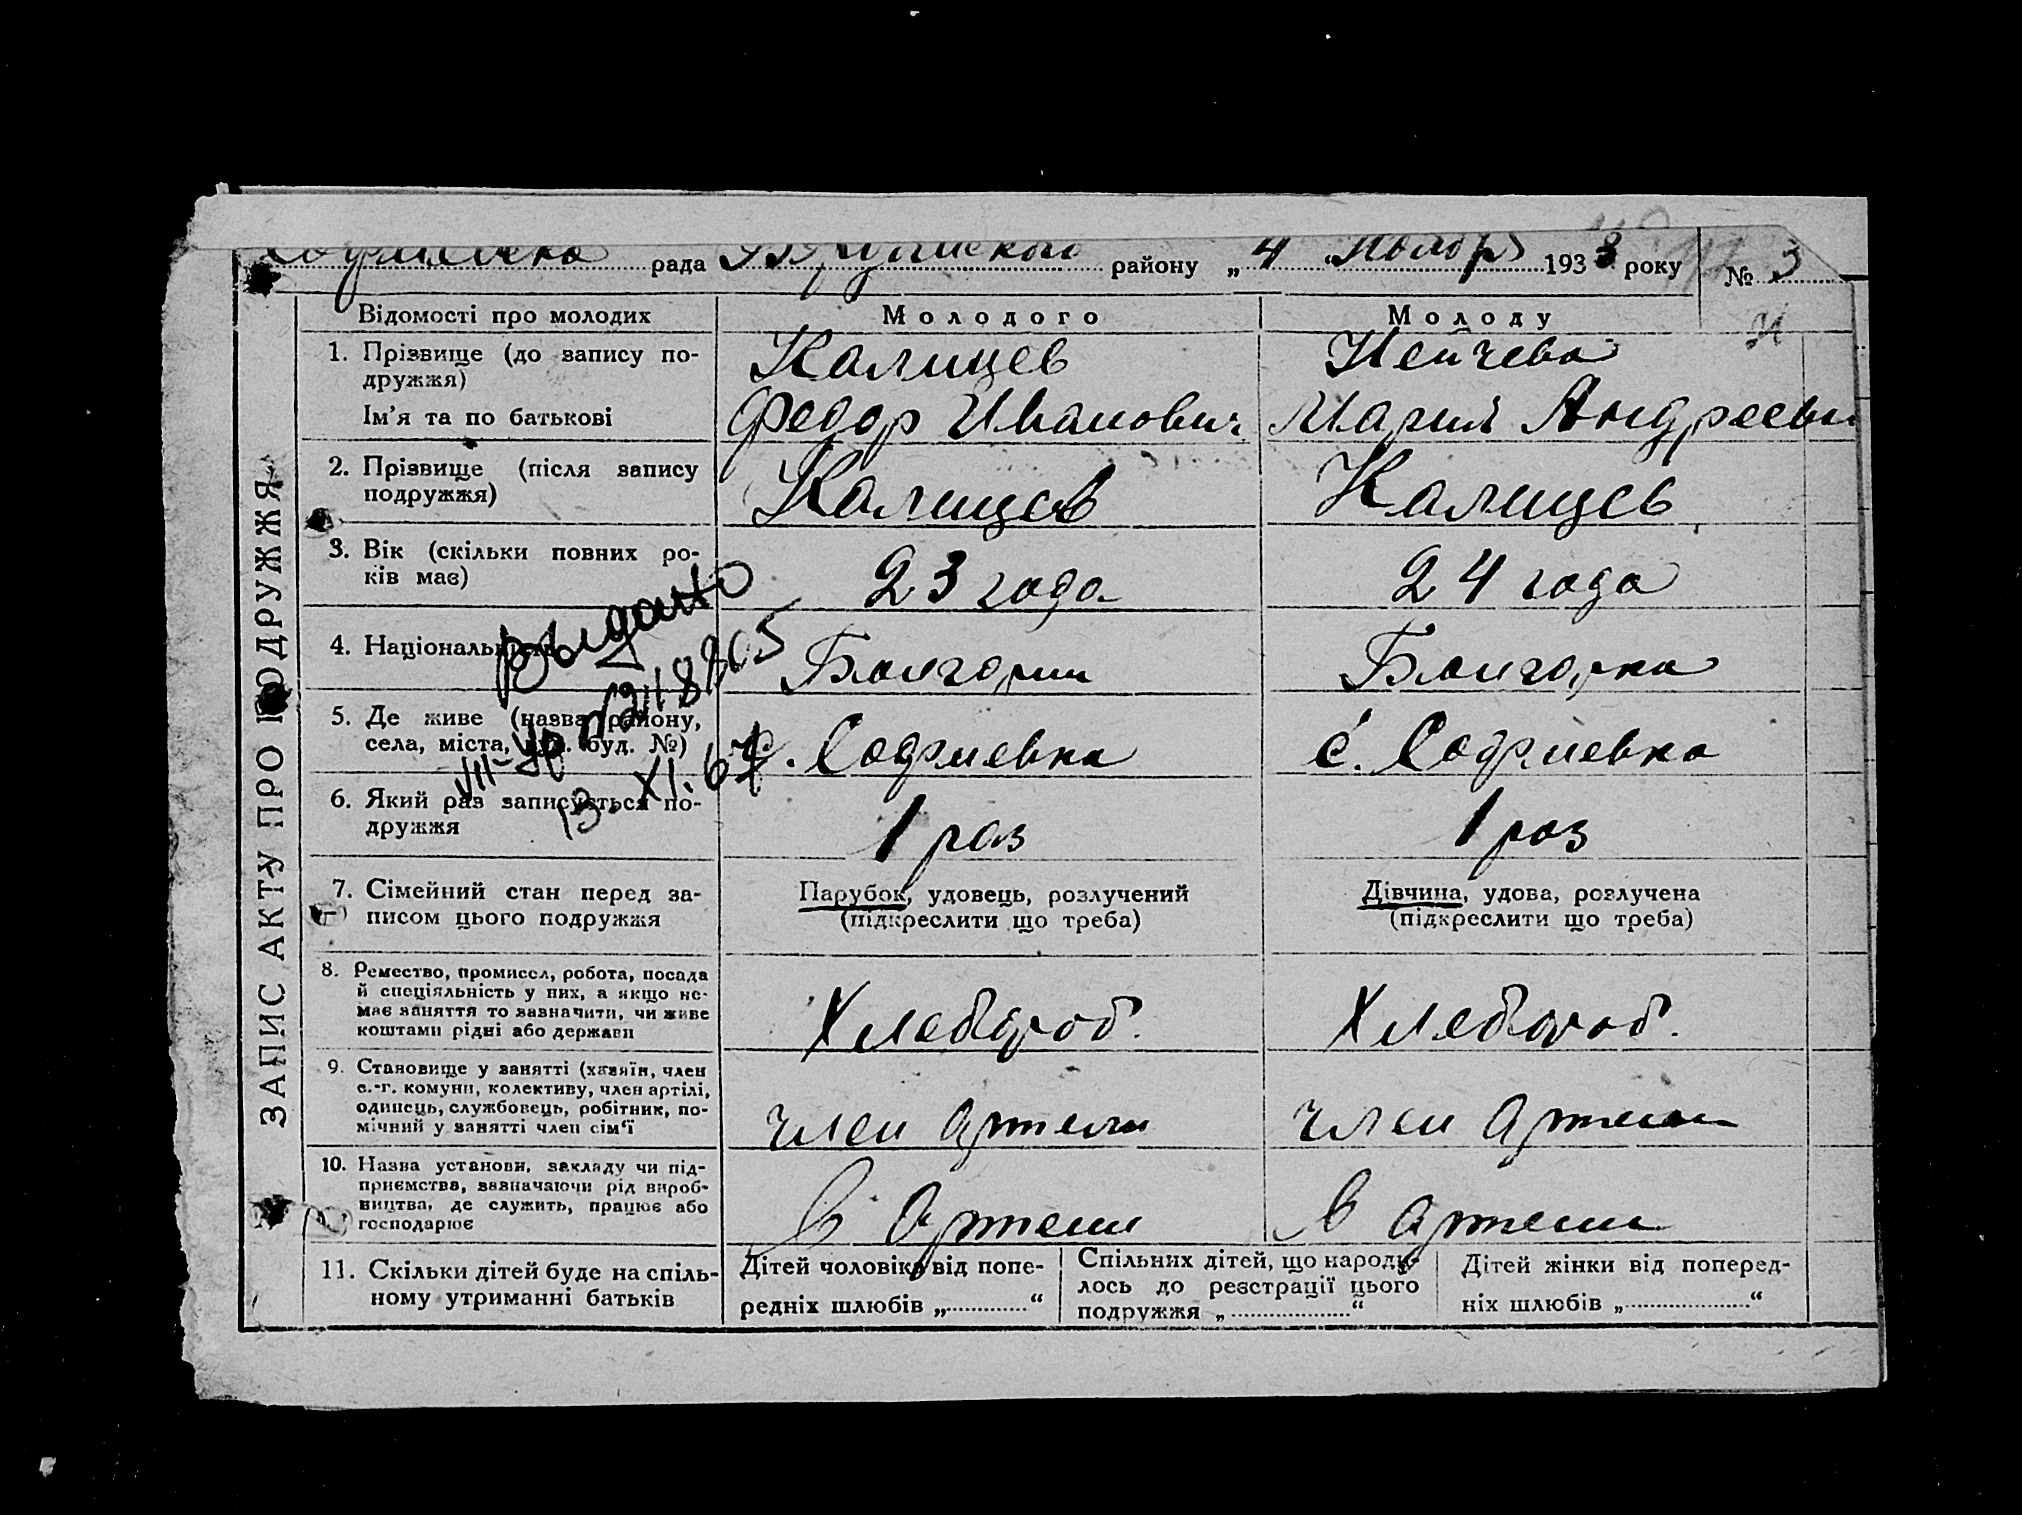 Софиевска рада района „4“ Ноября 1933 року № 3
Відомості про молодих Молодого Молоду
1. Прізвище (до запису по- Калицев Нейчева
дружжя)
Ім'я та по батькові Федор Иванович Мария Андреевн
2. Прізвище (після запису Калицев Калицев
подружжя)
3. Вік (скільки повних ро- 23 года 24 года
ків має)
4. Національ Болгарин Болгарка
5. Де живе (назва району, с. Софиевка с. Софиевка
села, міста, вул. буд. №)
6. Який раз записується по- 1 раз 1 раз
дружжя
7. Сімейний стан перед за- Парубок, удовець, розлучений Дівчина, удова, розлучена
писом цього подружжя (підкреслити що треба) (підкреслити що треба)
8. Ремество, промисел, робота, посада
й спеціяльність у них, а якщо не-
має заняття то зазначити, чи живе Хлебороб. Хлебороб.
коштами рідні або держави
9. Становище у занятті (хазяїн, член
с.-г. комуни, колективу, член артілі,
одинець, службовець, робітник, по- член артели член артели
мічний у занятті член сім'ї
10. Назва установи, закладу чи під-
приємства, зазначаючи рід вироб-
ництва, де служить, працює або в Артели в артели
господарює
11. Скільки дітей буде на спіль- Дітей чоловіка від попе- Спільних дітей, що народи- Дітей жінки від поперед-
ному утриманні батьків редніх шлюбів „............“ лось до реєстрації цього ніх шлюбів „............“
подружжя „............“
ЗАПИС АКТУ ПРО ПОДРУЖЖЯ
Выдано
VII-УР №
13. XI. 67